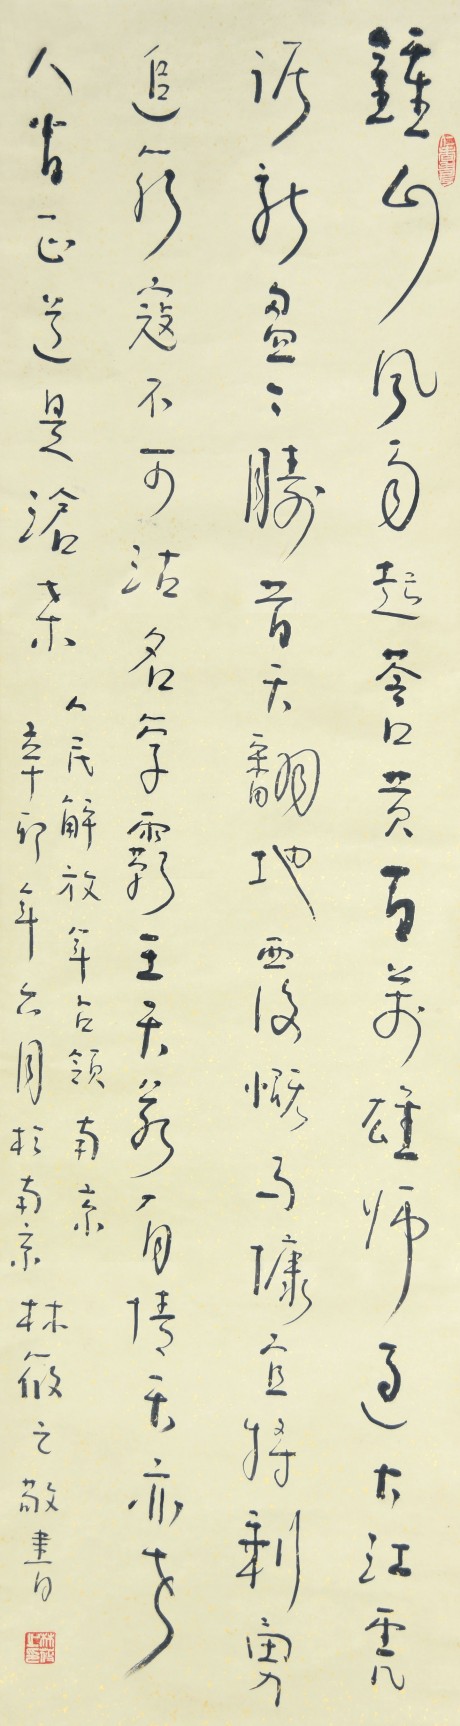 鍾山風雨起蒼黃百萬雄師過大江虎
踞龍盤今勝昔天翻地覆慨而慷宜將剩勇
追窮寇不可沽名學霸王天若有情天亦老
人間正道是滄桑
人民解放軍占領南京
辛卯年六月於南京林筱之敬書